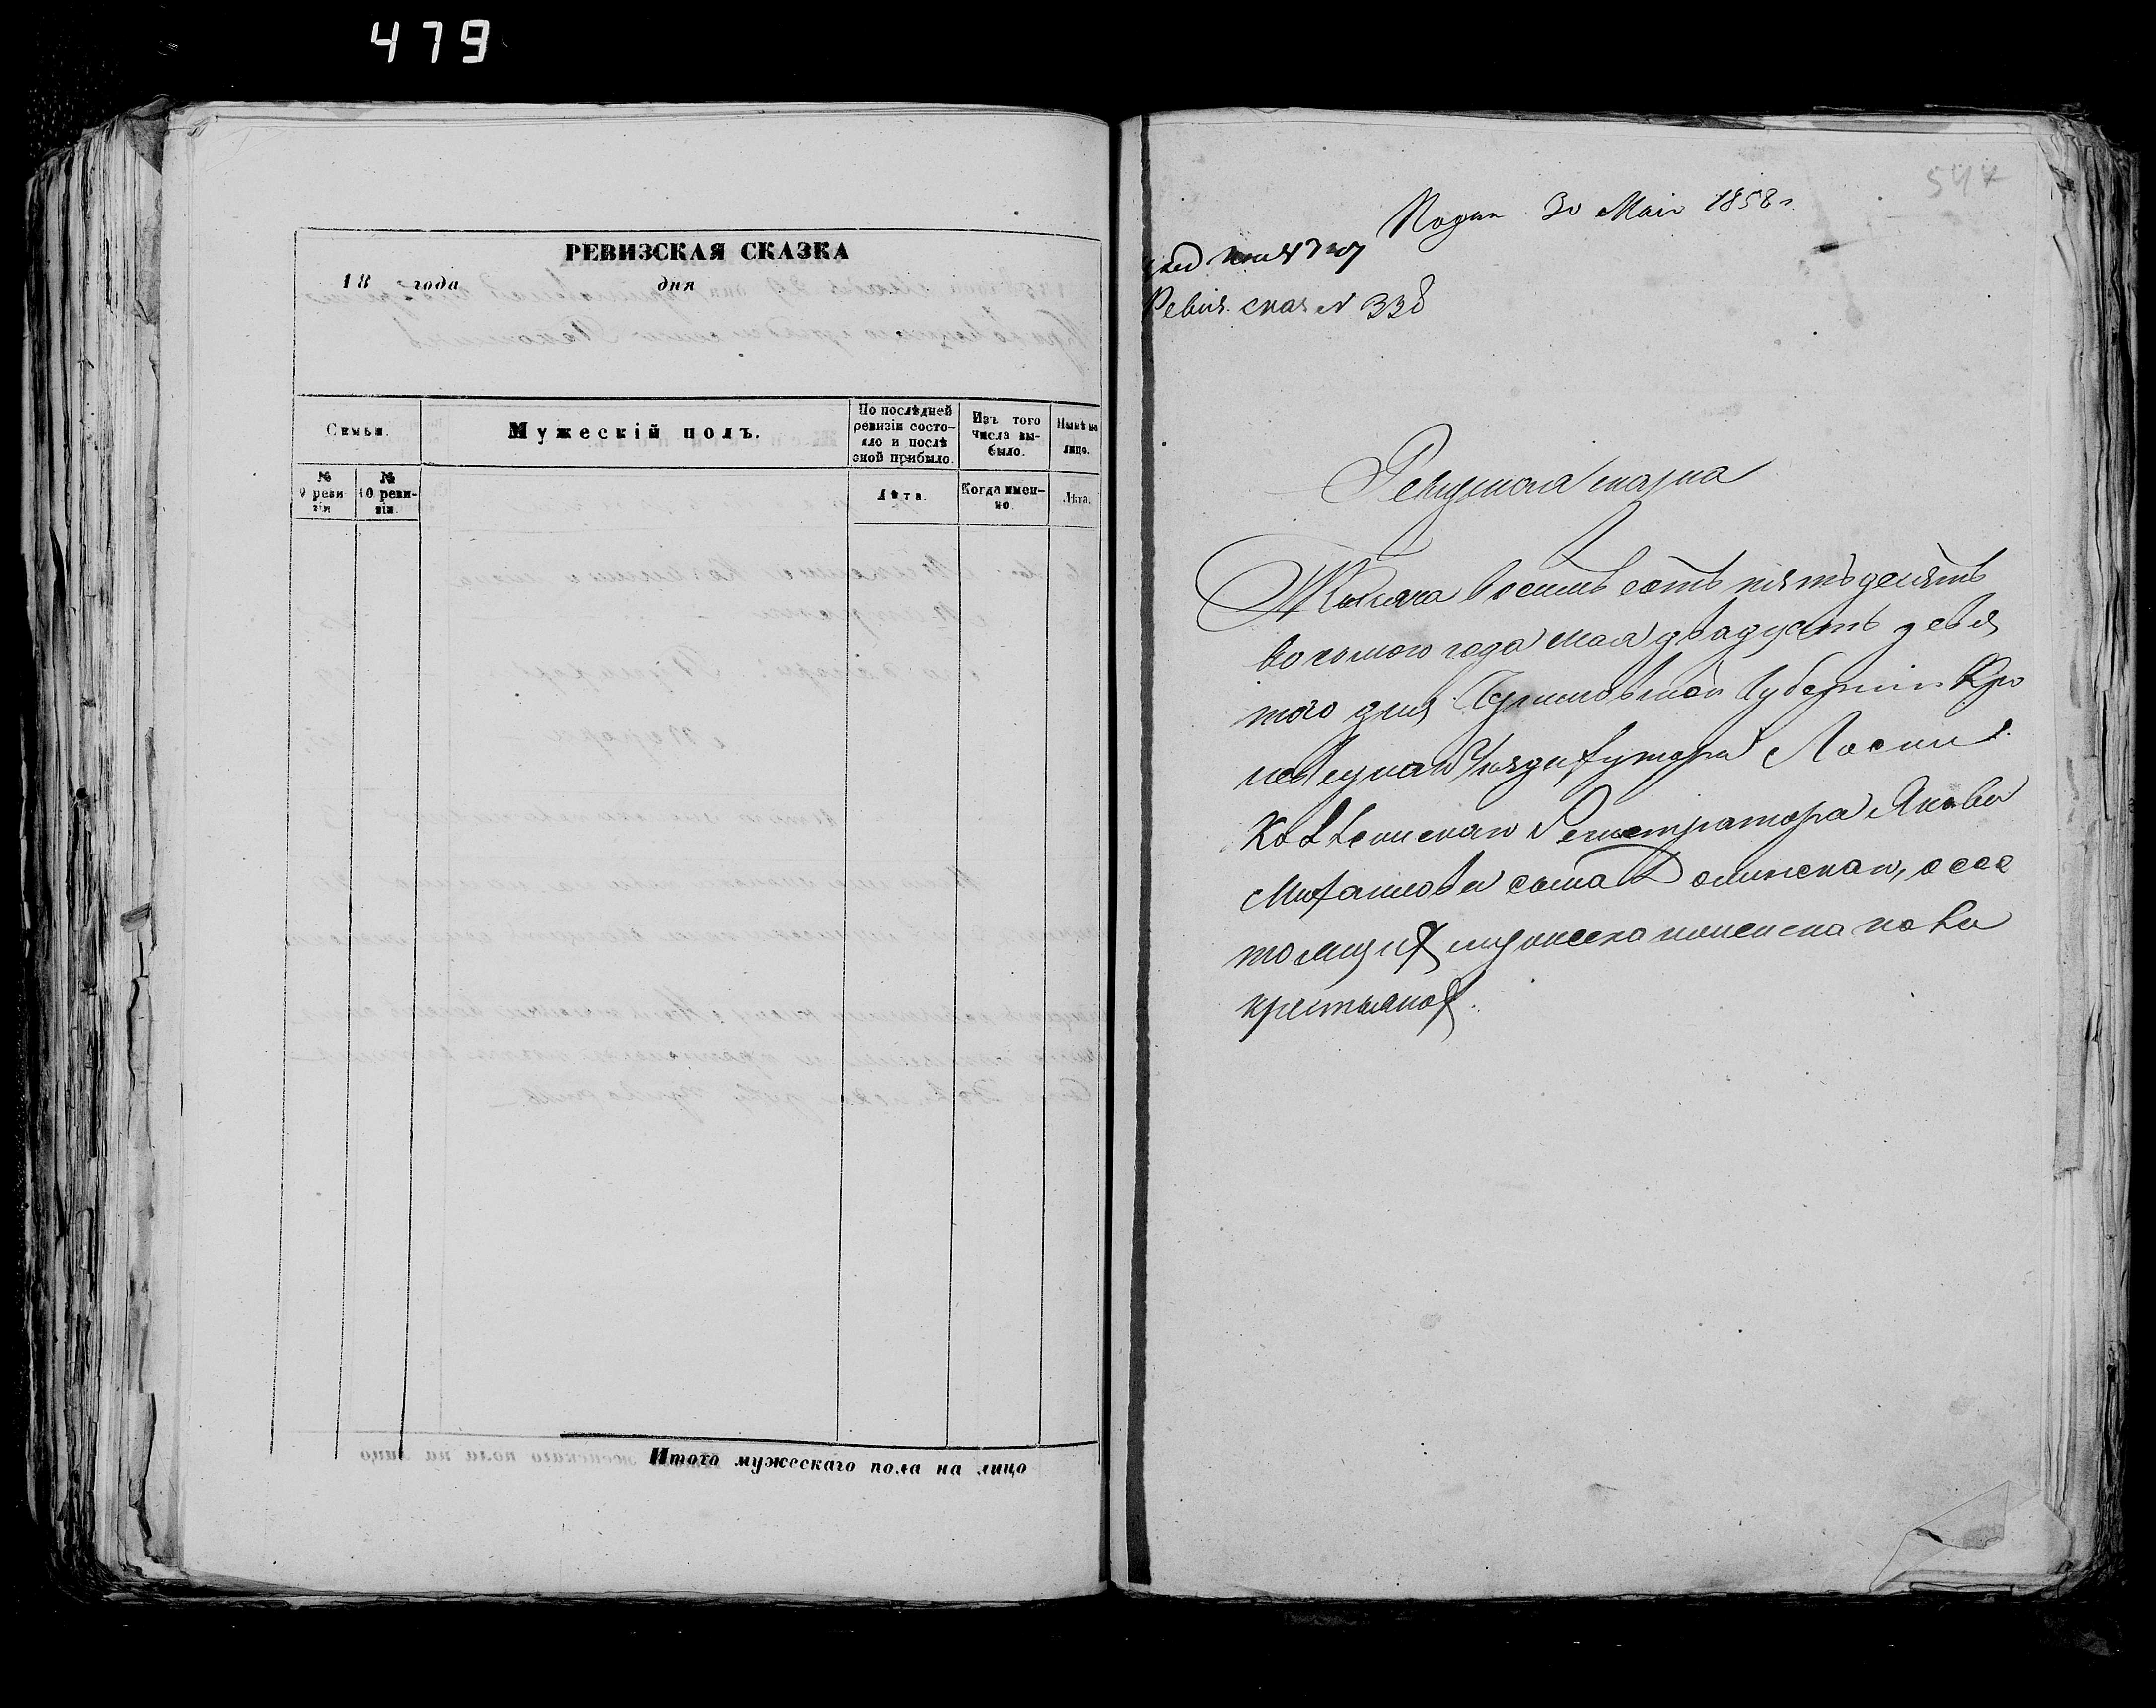 479
РЕВИЗСКАЯ СКАЗКА
18 года дня
Семьи.
Мужескій полъ.
По послѣдней ревизіи состояло и послѣ оной прибыло.
Изъ того числа выбыло.
Нынѣ на лицо.
№ 9 ревизіи
№ 10 ревизіи.
Лѣта.
Когда именно.
Лѣта.
Итого мужескаго пола на лицо
547
30 Маія 1858 г.
Ревиз. сказ N 338
Ревизская сказка
Тысяча восемь сотъ пятьдесятъ
восьмого года мая двадцать девя
того дня Черниговской Губерніи Кро
левецкаго Уѣзда хутора
Коллежскаго Регистратора Якова
Михайлова сына Долинскаго, о сос
тоящихъ мужеска и женска пола
крестьянахъ.